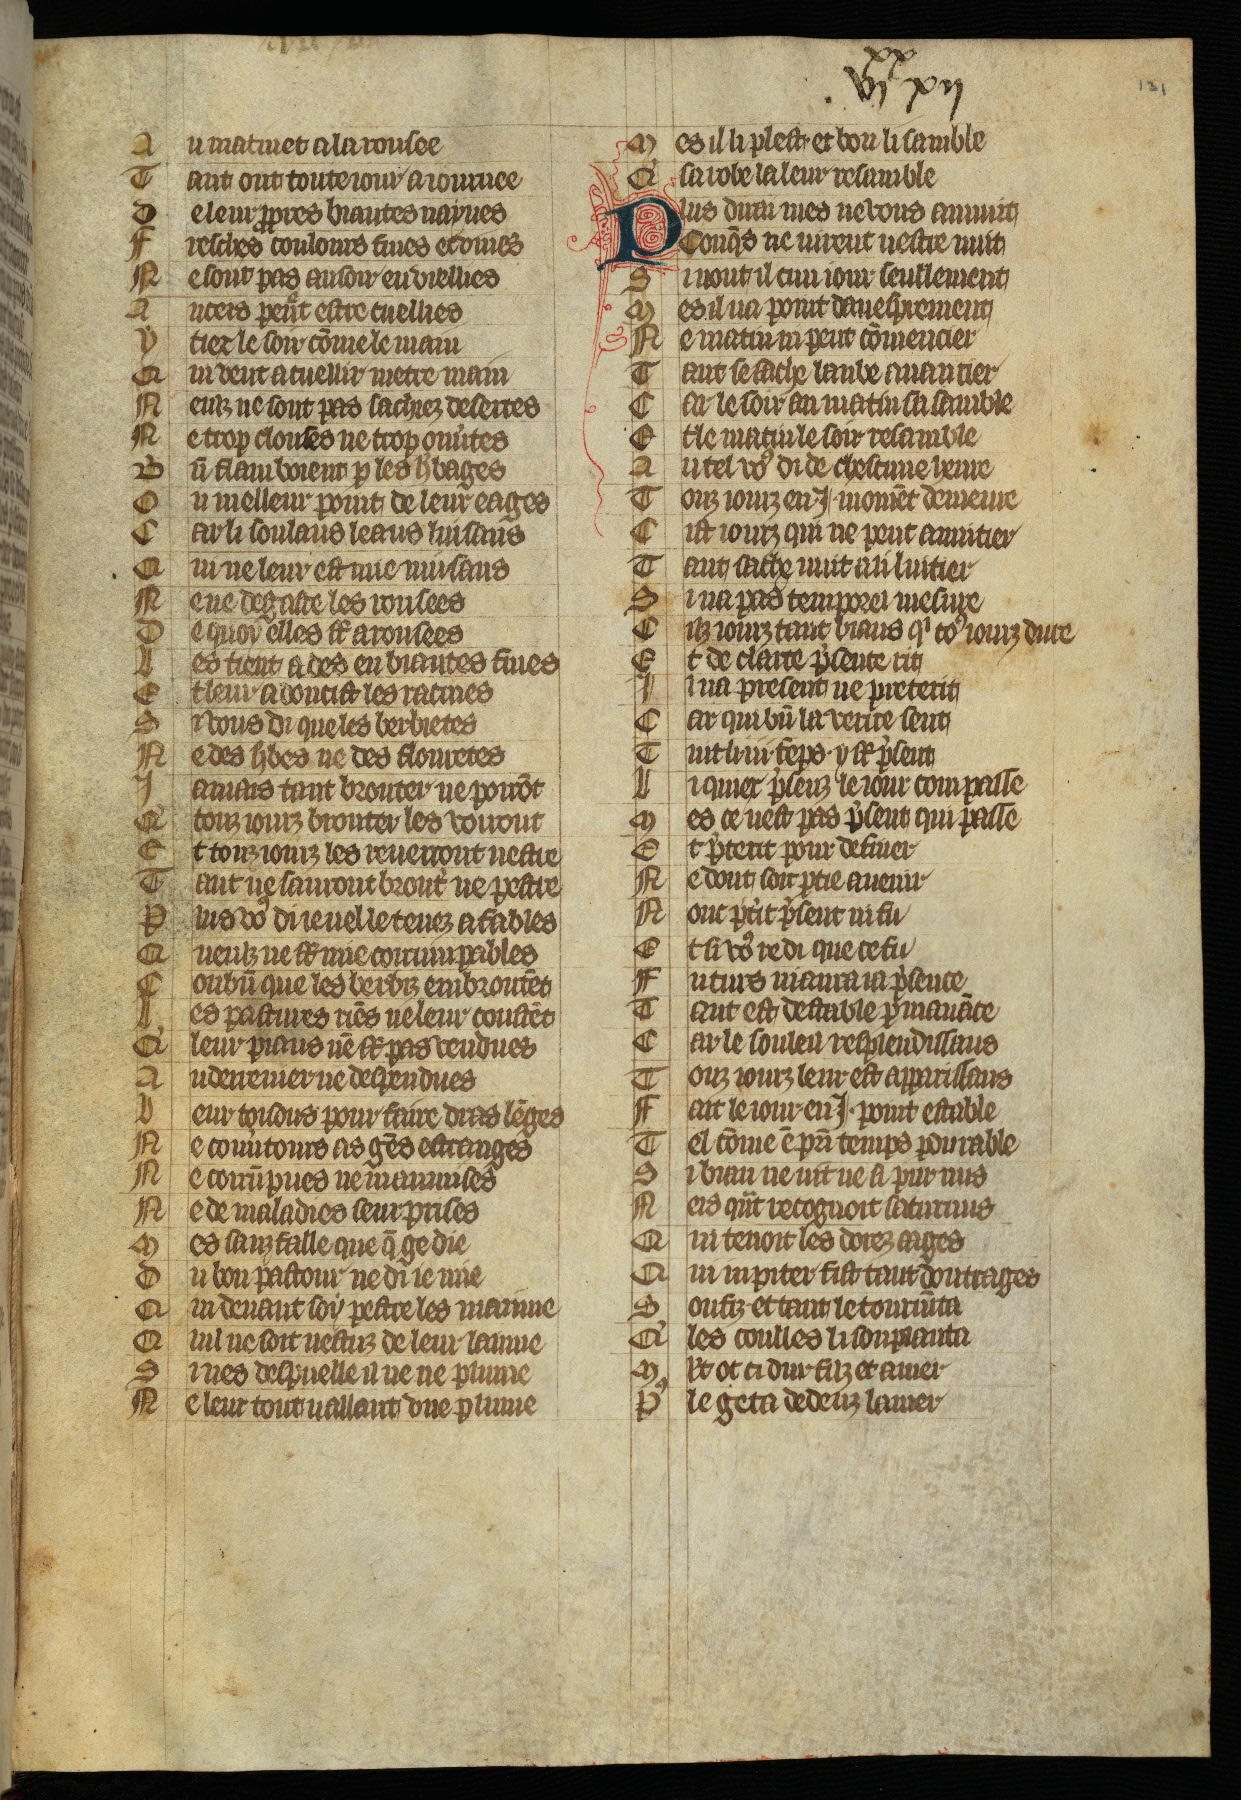 131
A u matinet a la rousee
T ant ont toute iour a iournee
D e leur ꝓpres biautes nayues
F resches coulours fines et viues
N e sont pas au soir enviellies
A ncers peuēt estre cuellies
V tiez le soir cōme le main
Q ui veut a cuellir metre main
N eurz ne sont pas sachiez desertes
N e trop clouses ne trop ouūtes
B n̄ flamboient p les h̄bages
O u melleur point de leur eages
C ar li soulaus leans luisans
Q ui ne leur est mie nuisans
N e ne degaste les rousees
D e quoy elles sōt arousees
L es tient ades en biautes fines
E t leur adoucist les racines
S i vous di que les berbietes
N e des h̄bes ne des flouretes
J amais tant brouter ne porrōt
Q touz iourz brouter les vorront
E t touz iourz les reuerront nestre
T ant ne sauront brout̄ ne pestre
P lus vꝰ di ie nelle tenez a fables
Q nentz ne sōt mie corrumpables
C onbn̄ que les berbiz enbroutēt
L es pastures riēs ne leur coustēt
Q leur piaus nē sōt pas vendues
A u derrenier ne despendues
L eur toisons pour faire dras lēges
N e couūtours as gēs estranges
N e corrūpues ne marrmises
N e de maladies seurprises
M es sanz falle que q̄ ge die
D u bon pastour ne di ie mie
Q ui deuant soy pestre les mainne
Q uil ne soit vestuz de leur lainne
S i nes despuelle il ne ne plume
N e leur tout uallant vne plume
M es il li plest et bon li samble
Q sa robe la leur resamble
P lus dirai mes ne vous anuuit
Conq̄s ne uirent nestre nuit
S i nont il cun iour seullement
M es il na point dauespremenț
N e matin ni peut cōmencier
T ant se sache laube auancier
C ar le soir au matin sasamble
E t le matin le soir resamble
A u tel vꝰ di de chescune heure
T ouz iourz en .J. momēt demeure
C ist iourz qui ne peut anuitier
T ant sache nuit a li luitier
S i na pas temporel mesure
C ilz iourz tant biaus q̍ toꝰ iourz dure
E t de clarte p̄sente rit
J l na present ne preterit
C ar qui bn̄ la verite sent
T uit li .iii. teps y sōt p̄sent
L i quiex p̄senz le iour compasse
M es ce nest pas p̄sent qui passe
E t p̄terit pour definer
N e dont soit ꝑtie a venir
N onc p̄t̄it p̄sent ni fu
E t si vꝰ redi que ce fu
F uturs niaura ia p̄sence
T ant est destable p̄manāce
C ar le souleil resplendissans
T ouz iourz leur est apparissans
F ait le iour en .J. point estable
T el cōme ē prī temps pourable
S i biau ne uit ne si pur nus
N eis qn̄t recognoit saturnus
Q ui tenoit les dorez aages
Q ui iupiter fist tant doutrages
S on fiz et tant le tourmēta
Q les coulles li souplanta